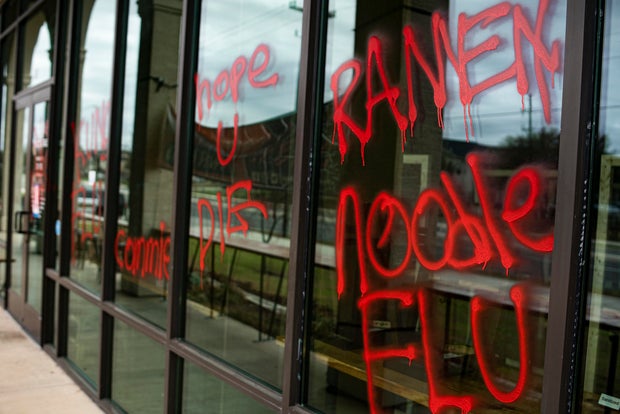 Commie
hope
u
DIE
RAMEN
noodle
FLU